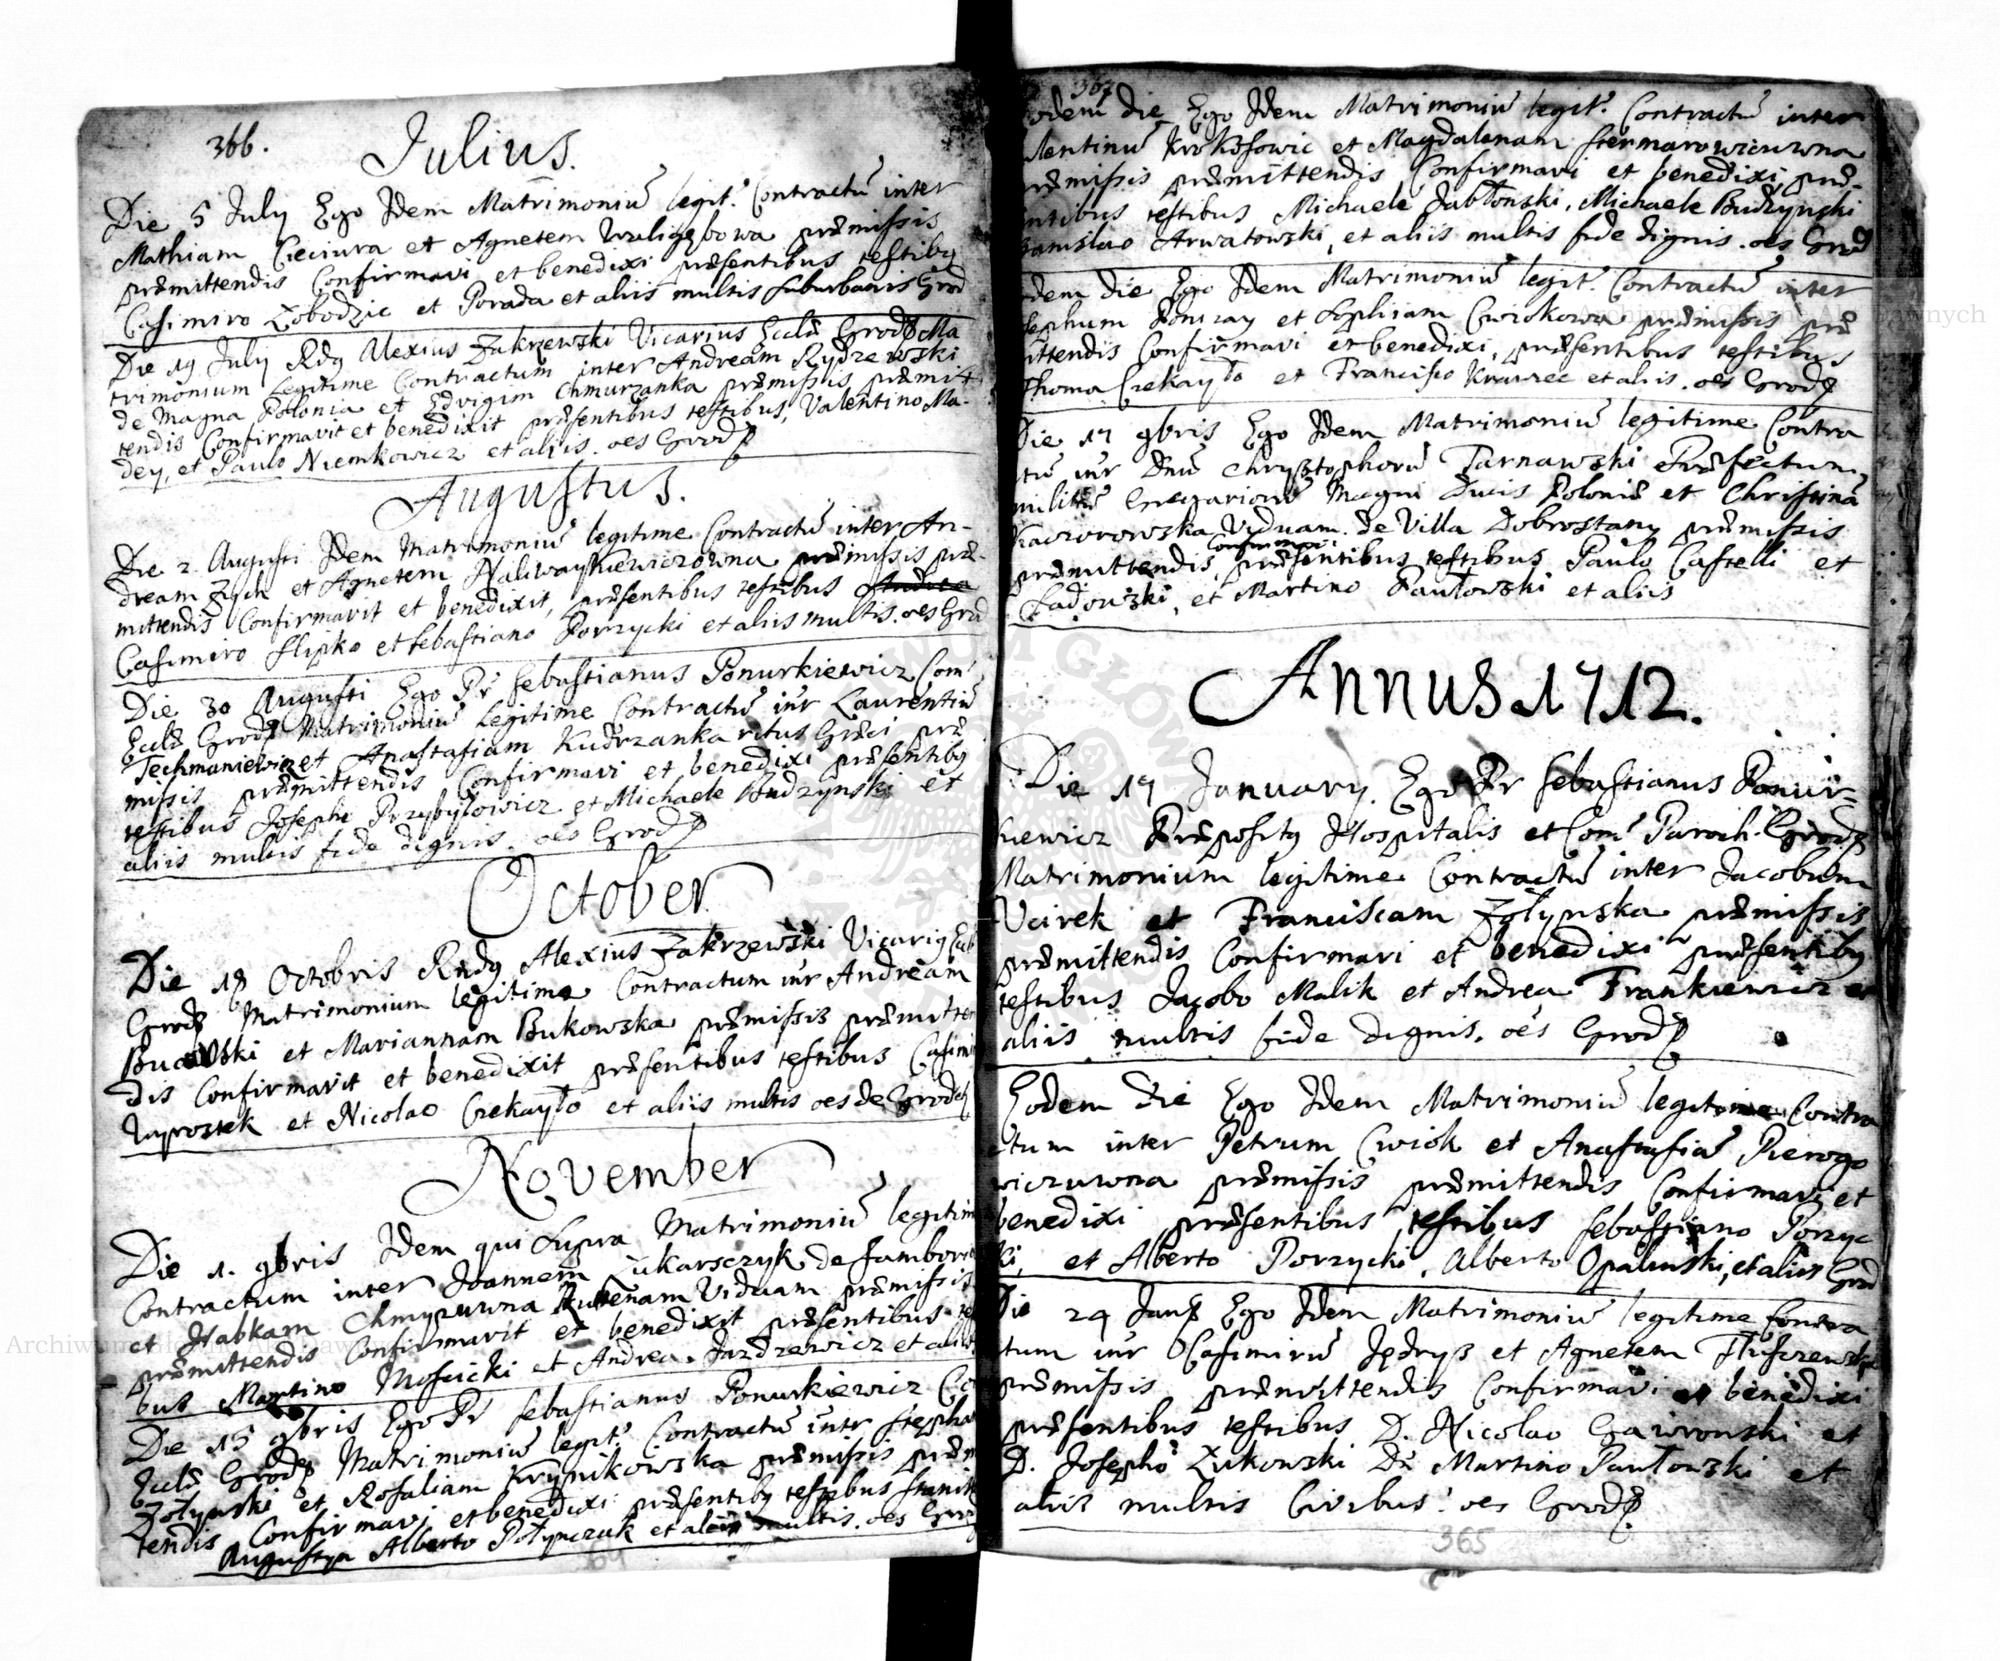 366.
Julius.
Die 5 July Ego Idem Matrimoniũ legit. Contractũ inter
Mathiam Cieciura et Agnetem præmissis
præmittendis Confirmavi et benedixi præsentibus testibq
Casimiro Łobodzic et Porada et aliis multis suburbanis Grod
Die 19 July Rdq Alexius Zakrzewski Vicarius Eccl Grod Ma
trimonium Legitime Contractum inter Andream Rydzewski
de Magna Polonia et Edvigim Chmurzanka præmissis præmit
tendis Confirmavit et benedixit præsentibus testibus, Valentino Ma-
dey, et Paulo Niemkowicz et aliis. oes Grod
Augustus.
Die 2 Augusti Idem Matrimoniũ legitime Contractũ inter An-
dream Zych et Agnetem Naliwaykiewiczowna præmissis præ-
mittendis Confirmavit et benedixit, præsentibus testibus
Casimiro Slipko et Sebastiano Porzycki et aliis multis. oes Grod
Die 30 Augusti Ego Pr Sebastianus Ponurkiewicz Com
Eccl Grod Matrimoniũ Legitime Contractũ intr Laurentiũ
Techmaniewicz et Anastasiam Kudrzanka ritus Græci præ
missis præmittendis Confirmavi et benedixi præsentibq
testibus Josepho Przybyłowicz et Michaele Budzynski et
aliis multis fide dignis. oes Grod
October
Die 18 Octobris Rndq Alexius Zakrzewski Vicariq Eccl
Grod Matrimonium legitime Contractum intr Andream
et Mariannam Bukowska præmissis præmitten
dis Confirmavit et benedixit præsentibus testibus Casimi
Zaprostek et Nicolao Czekayło et aliis multis oes de Grodek
November
Die 1. 9bris Idem qui Supra Matrimoniũ legitim
Contractum inter Joannem Łukarsczyk de
et Habkam Chmypuwna Rutenam Viduam præmissis
præmittendis Confirmavit et benedixit præsentibus te
bus Martino Moscicki et Andrea Jazdzewicz et aliis
Die 15 9bris Ego Pr Sebastianus Ponurkiewicz Co
Eccl Grod Matrimoniũ legit. Contractũ intr Stepha
Zołynski et Rosaliam Krynikowska præmissis præm
tendis Confirmavi et benedixi præsentibq testibus Stanis
Augustyn Alberto Połynczuk et aliis multis. oes Grod
367
Eodem die Ego Idem Matrimoniũ legit. Contractũ inter
alentinũ Krokosowic et Magdalenam
præmissis præmittendis Confirmavi et benedixi præ-
entibus testibus Michaele Jabłonski, Michaele Budzynski
tanislao Arwatowski, et aliis multis fide dignis. oes Grod
odem die Ego Idem Matrimoniũ legit. Contractũ inter
sephum et Sophiam Cwiokowa præmissis præ
ittendis Confirmavi et benedixi, præsentibus testibus
Thoma Czekayło et Francisco Krawiec et aliis. oes Grod
Die 17 9bris Ego Idem Matrimoniũ legitime Contra
ctũ intr Dnũ Chrysztophorũ Tarnawski Præfectum
militũ Gregariorũ Magni Ducis Poloniæ et Christinã
Kaczorowska Viduam de Villa Dobrostany præmissis
præmittendis Confirmavi præsentibus testibus Paulo Castelli et
Ładowski, et Martino Pawłowski et aliis
Annus 1712.
Die 17 January. Ego Pr Sebastianus Ponur-
kiewicz Præpositq Hospitalis et Com Paroch. Grod
Matrimonium legitime Contractũ inter Jacobum
Ucirek et Franciscam Zołynska præmissis
præmittendis Confirmavi et benedixi præsentibq
testibus Jacobo Malik et Andrea Frankiewicz et
aliis multis fide dignis. oes Grod
Eodem die Ego Idem Matrimoniũ legitime Contra
ctum inter Petrum Cwiok et Anastasiã Pierogo
wiczuwna præmissis præmittendis Confirmavi et
benedixi præsentibus testibus Sebastiano Porzyc
ki, et Alberto Porzycki, Alberto Opalinski, et aliis Grod
Die 24 Jan Ego Idem Matrimoniũ legitime Contra
ctum intr Casimirũ Jędrysz et Agnetem
præmissis præmittendis Confirmavi et benedixi
præsentibus testibus D. Nicolao Gawronski et
D. Josepho Zukowski D. Martino Pawłowski et
aliis multis Civibus. oes Grod
365
Archiwum Główne Akt Dawnych
Archiwum Główne Akt Dawnych